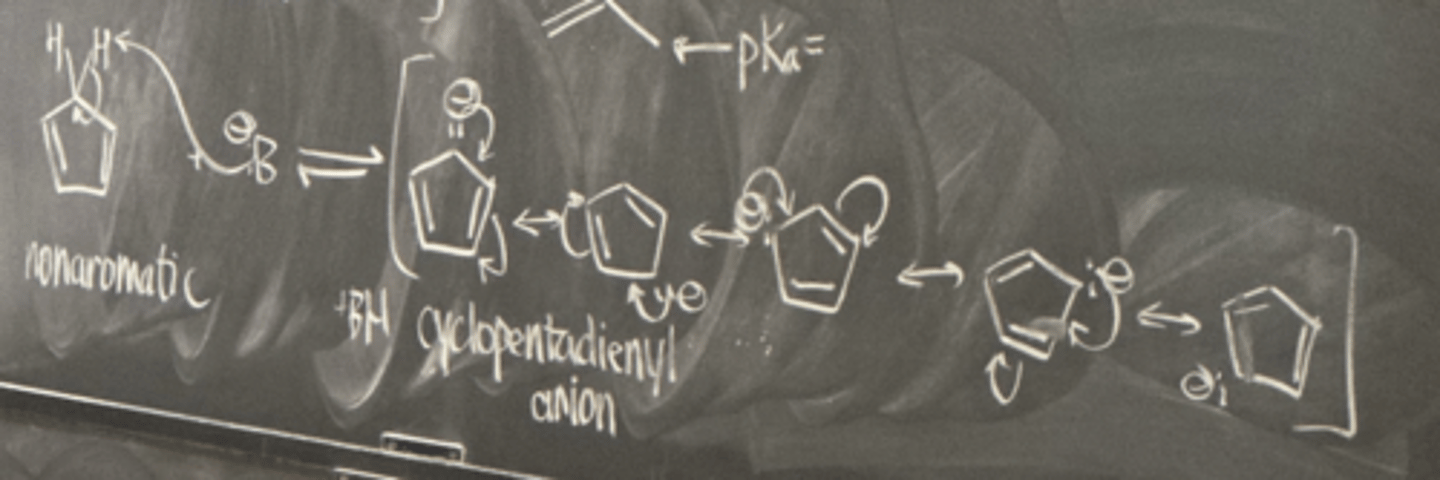 pKa=
H H
⊖
B
⊖
⊖
⊖
⊖
⊖
nonaromatic
+BH
cyclopentadienyl
anion